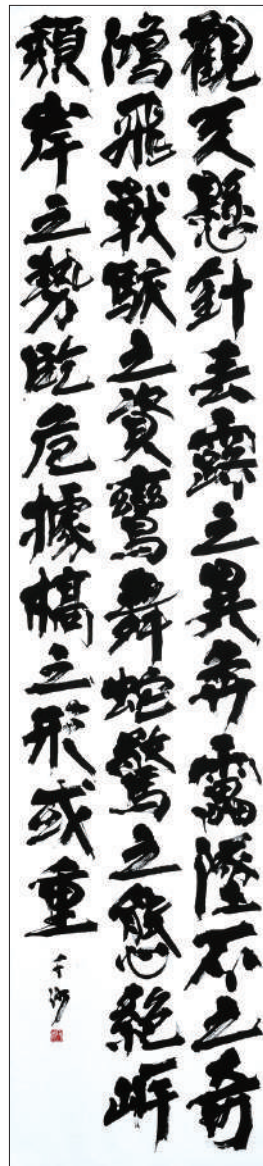 觀夫懸針垂露之異奔雷墜石之奇
鴻飛獸駭之資鸞舞蛇驚之態絶岸
頽峰之勢臨危據槁之形或重
千沙